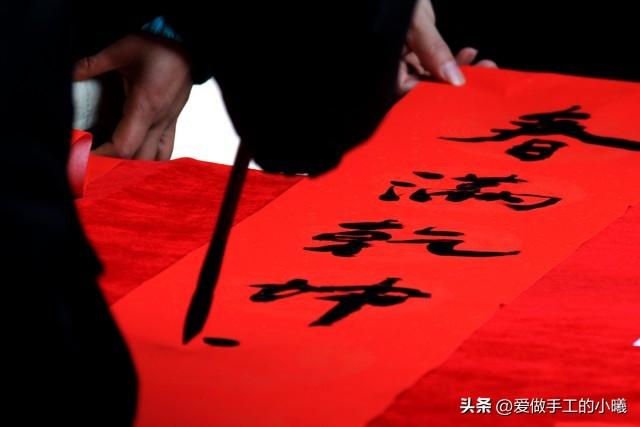 春满乾坤
头条 @爱做手工的小曦